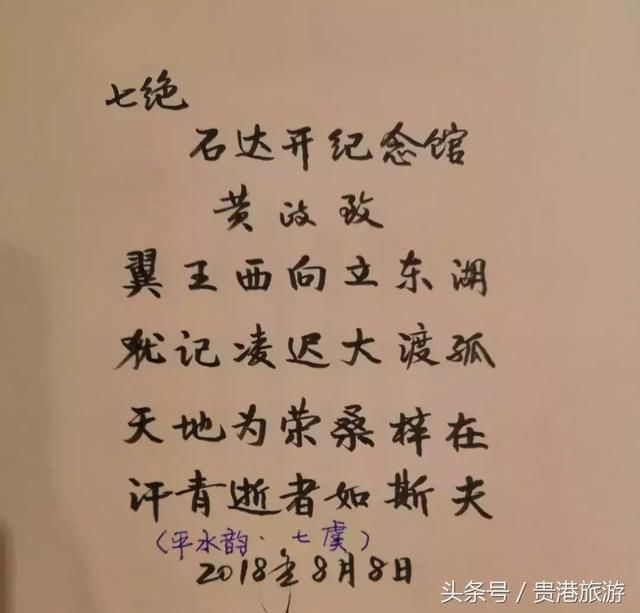 七绝
石达开纪念馆
黄政致
翼王西向立东湖
犹记凌迟大渡孤
天地为荣桑梓在
汗青逝者如斯夫
(平水韵·七虞)
2018年8月8日
头条号/贵港旅游